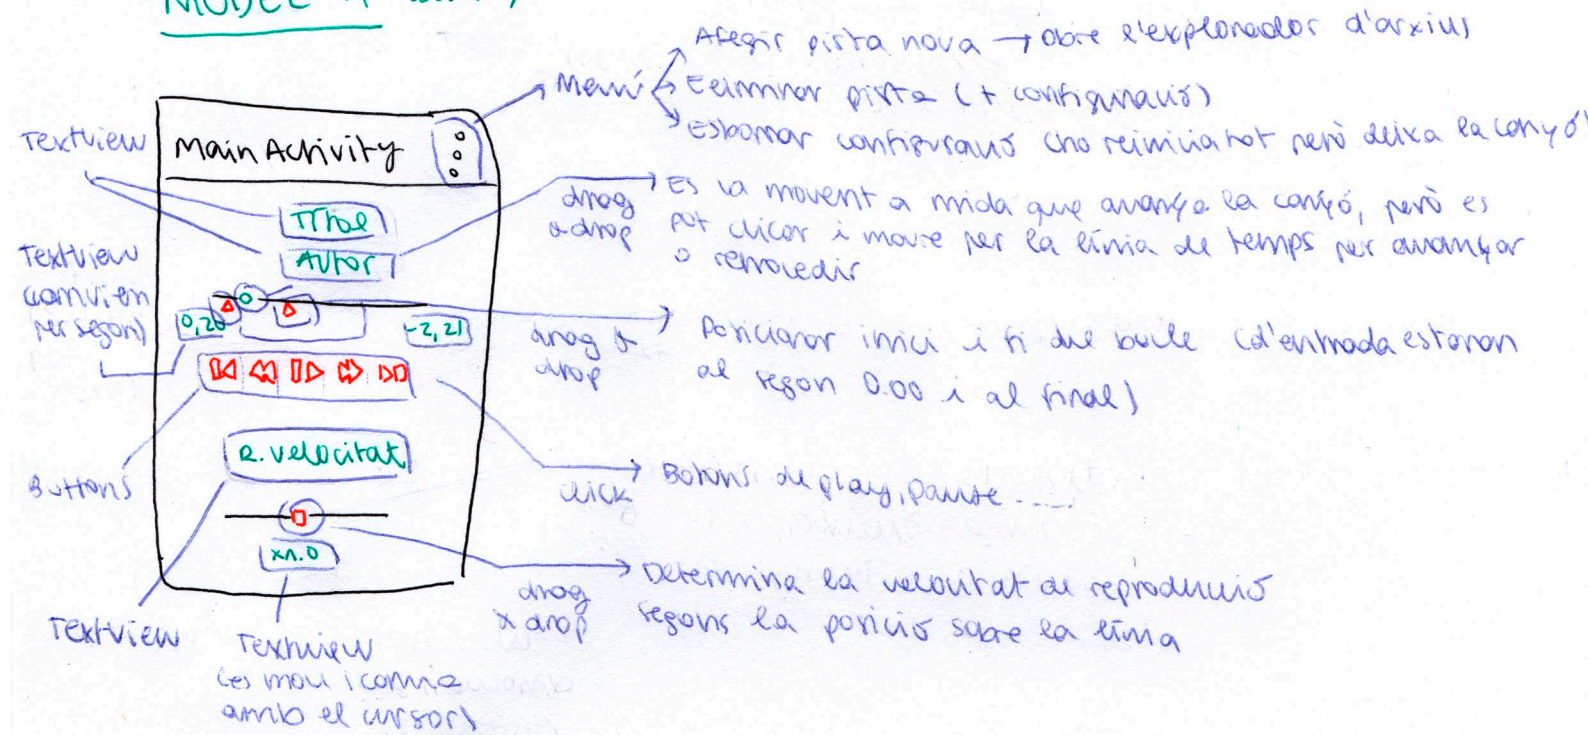 MODEL
Afegir pista nova → obre l'explorador d'arxius
Menú
Eliminar pista (+ configuració)
Esborrar configuració (ho reinicia tot però deixa la cançó)
TextView
MainActivity
Títol
Autor
drag
& drop
Es va movent a mida que avança la cançó, però es
pot clicar i moure per la línia de temps per avançar
o retrocedir
TextView
(canvien
per segon)
0,20
-2,21
drag &
drop
Posicionar inici i fi del bucle (d'entrada estaran
al segon 0.00 i al final)
R. velocitat
Buttons
click
Botons de play, pause .....
x1.0
drag
& drop
Determina la velocitat de reproducció
segons la posició sobre la línia
TextView
TextView
(es mou i canvia
amb el cursor)